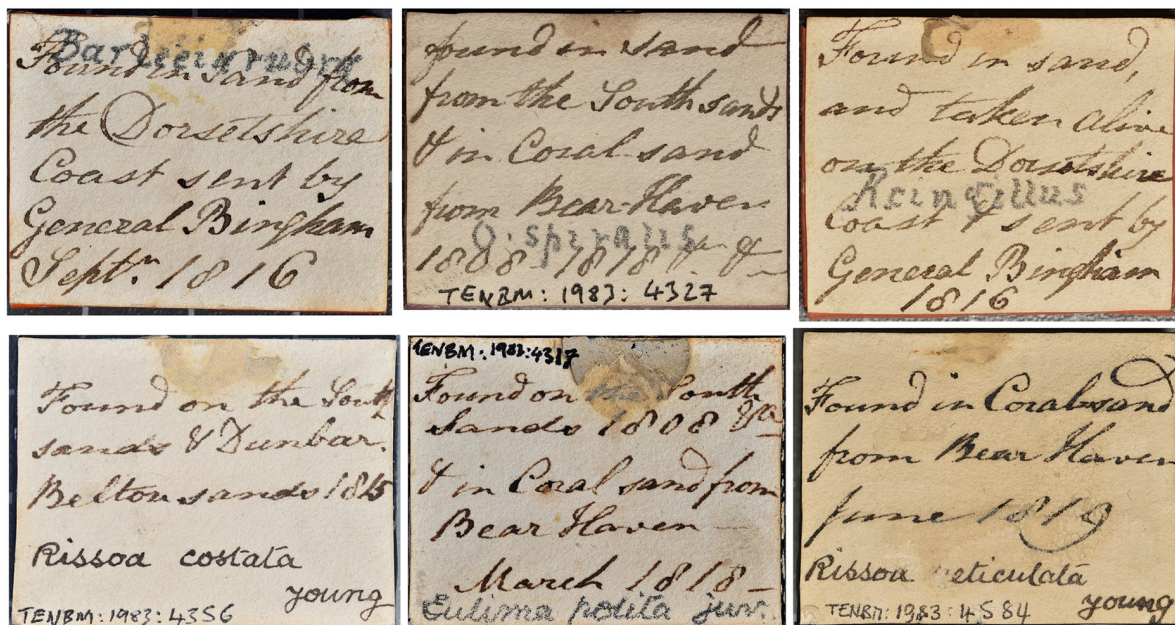 Barleeia rubra
Found in sand from
the Dorsetshire
Coast sent by
General Bingham
Septr. 1816
found in sand
from the South sands
& in Coral sand
from Bear-Haven
O. spiralis
1808 1818 &
TENBM: 1983: 4327
Found in sand,
and taken alive
on the Dorsetshire
R cingillus
Coast & sent by
General Bingham
1816
Found on the South
sands & Dunbar.
Belton sands 1815
Rissoa costata
young
TENBM: 1983: 4356
TENBM: 1983: 4317
Found on the South
Sands 1808 &
& in Coral sand from
Bear Haven —
March 1818 —
Eulima polita juv.
Found in Coral sand
from Bear Haven
June 1819
Rissoa reticulata
young
TENBM: 1983: 4584